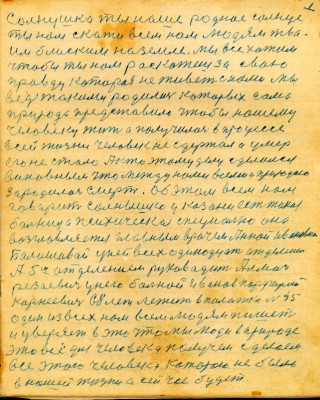 1
Солнушка ты наше родное солнце
ты нам скажи всем нам людям тва-
им близким на земле. мы все хотим
чтобы ты нам раскажи за свою
правду которая не живет с нами мы
все такими родились которых сама
природа представила чтобы нашему
человеку жить а получилась в процессе
всей жизни человек не сдержал а умер
его не стало. А кто этому делу сделался
виновным что между нами всеми в природе
зародилась смерть. Об этом всем нам
гаварит солнышко у казани ест такая
балница психическая специално она
возглавляется главным врачем Анной Ивановна
у ней всех одинодцат отделени
А 5ч отделением руковадит
у него балной Иванов парфирий
Карнеевич С 8 лет лежит в палати N 35
один из всех нам всем людям пишет
и уверяет в это што мы люди в природе
это всё для человека получем сделаем
все этого человека которого не было
в нашей жизни а сейчас будет.